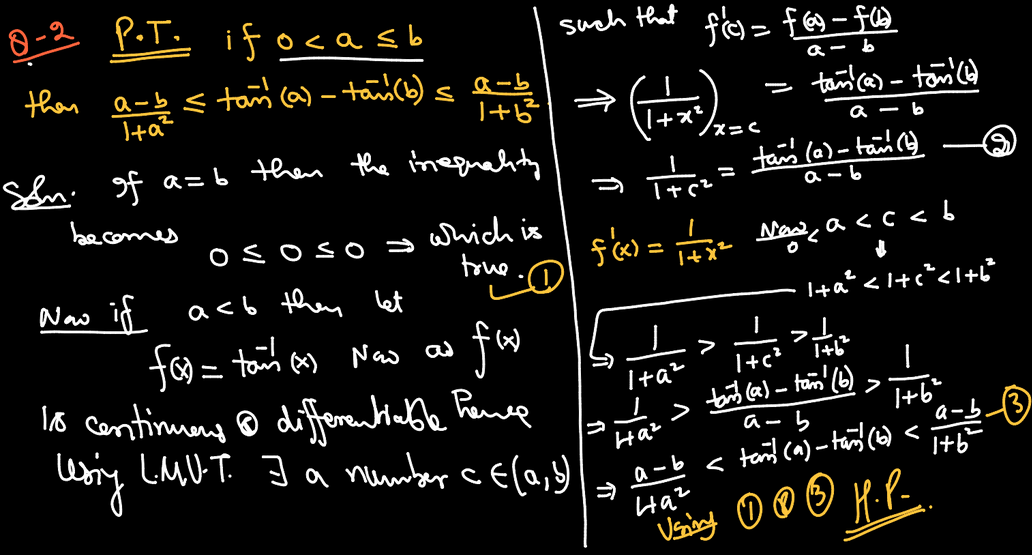 Q-2 P.T. if 0 < a ≤ b
then (a-b)/(1+a²) ≤ tan⁻¹(a) - tan⁻¹(b) ≤ (a-b)/(1+b²)
Soln. If a = b then the inequality
becomes 0 ≤ 0 ≤ 0 ⇒ which is
true. ①
Now if a < b then let
f(x) = tan⁻¹(x) Now as f(x)
is continuous & differentiable hence
Using L.M.V.T. ∃ a number c ∈ (a, b)
such that f'(c) = (f(a) - f(b))/(a - b)
⇒ (1/(1+x²))ₓ₌c = (tan⁻¹(a) - tan⁻¹(b))/(a - b)
⇒ 1/(1+c²) = (tan⁻¹(a) - tan⁻¹(b))/(a-b) — ②
f'(x) = 1/(1+x²) Now 0 < a < c < b
↓
1+a² < 1+c² < 1+b²
→ 1/(1+a²) > 1/(1+c²) > 1/(1+b²)
⇒ 1/(1+a²) > (tan⁻¹(a) - tan⁻¹(b))/(a - b) > 1/(1+b²)
⇒ (a-b)/(1+a²) < tan⁻¹(a) - tan⁻¹(b) < (a-b)/(1+b²) — ③
Using ① & ③ H.P.